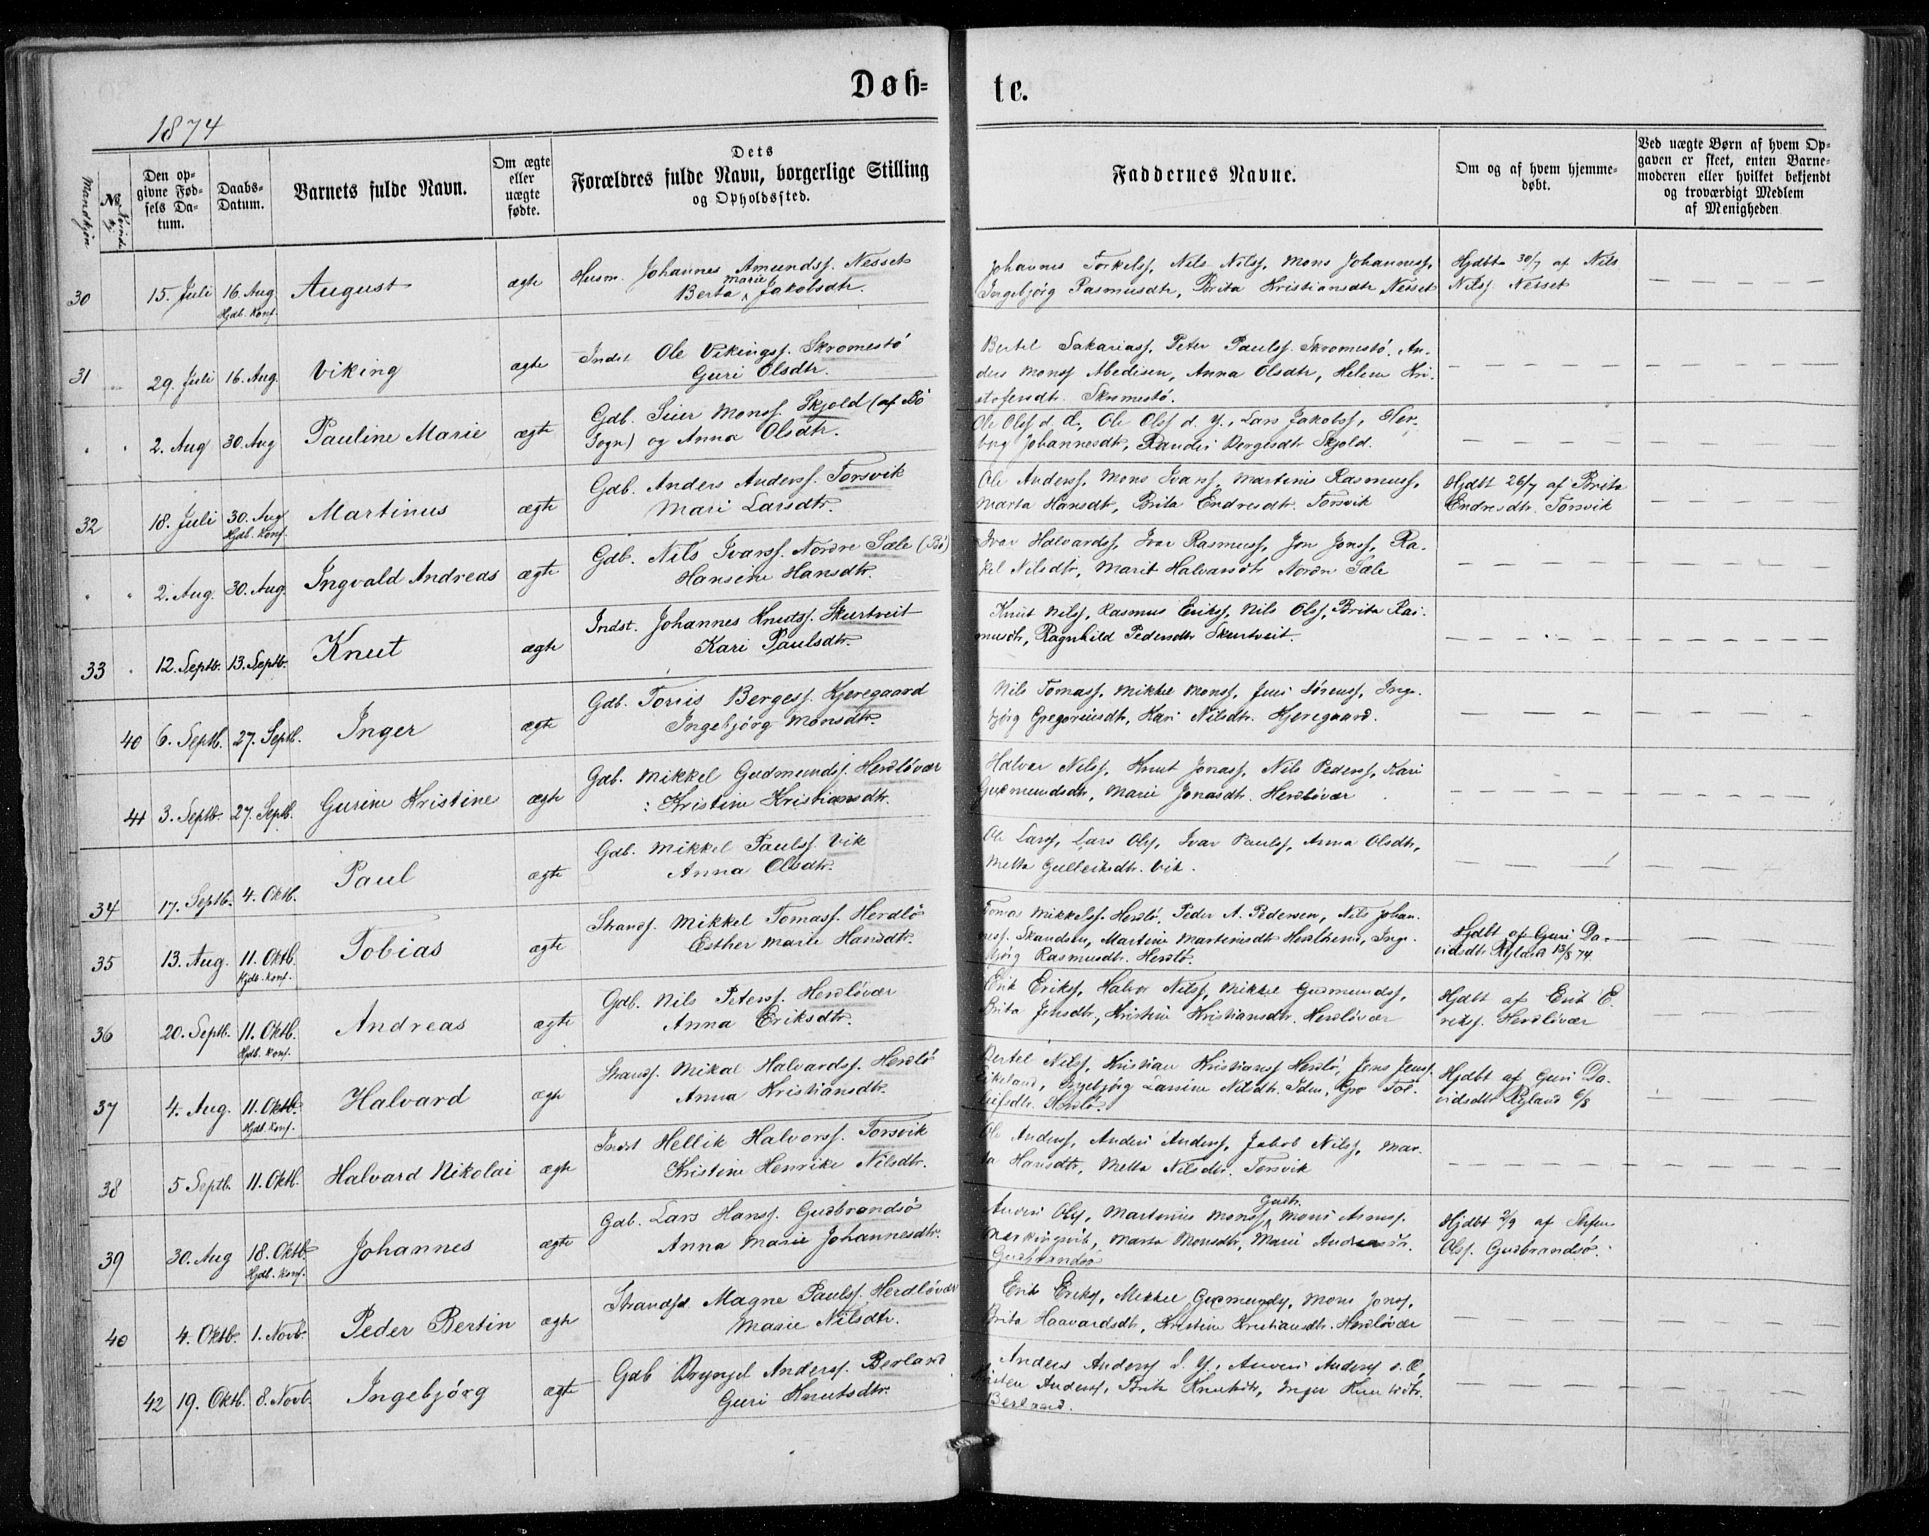 Døb=
te.
1874
Mandkjøn
No
Kvindekj.
Den op-
givne Fød-
sels Da-
tum.
Daabs-
Datum.
Barnets fulde Navn.
Om ægte
eller
uægte
fødte.
Dets
Forældres fulde Navn, borgerlige Stilling
og Opholdssted.
Faddernes Navne.
Om og af hvem hjemme-
døbt.
Ved uægte Børn af hvem Op-
gaven er skeet, enten Barne-
moderen eller hvilket bekjendt
og troværdigt Medlem
af Menigheden
30 15. Juli 16. Aug. August ægte Husm. Johannes Amundsf. Nesset
Hjdb. Konf. Berta Marie Jakobsdtr.
Johannes Torkelsf, Nils Nilsf, Mons Johannesf,
Ingebjörg Rasmusdtr, Brita Kristiansdtr Nesset
Hjdbt 30/7 af Nils
Nilsf Nesset
31 29. Juli 16. Aug. Viking ægte Indst Ole Vikingsf. Skromestö
Guri Olsdtr.
Bertel Sakariasf, Peter Paulsf Skromestö, An-
ders Monsf Abedisen, Anna Olsdtr, Helene Kri-
stofersdtr. Skromestö.
2. Aug 30. Aug Pauline Marie ægte Gdb. Sier Monsf. Skjold (af Bö
Sogn) og Anna Olsdtr.
Ole Olsf d. Æ, Ole Olsf d. Y., Lars Jakobsf, Tor-
borg Johannesdtr, Randei Bergesdtr Skjold.
32 18. Juli 30. Aug Martinus ægte Gdb. Anders Andersf. Torsvik
Hjdb. Konf. Mari Larsdtr.
Ole Andersf, Mons Ivarsf, Martinus Rasmusf,
Marta Hansdtr, Brita Endresdtr. Torsvik
Hjdbt 26/7 af Brita
Endresdtr. Torsvik
2. Aug. 30. Aug. Ingvald Andreas ægte Gdb. Nils Ivarsf. Nordre Sæle (Bö)
Hansine Hansdtr.
Ivar Halvardsf, Ivar Rasmusf, Jon Jonsf, Ra-
kel Nilsdtr, Marit Halvardsdtr Nordre Sæle
33 12. Septb. 13. Septb. Knut ægte Indst. Johannes Knutsf. Skurtveit
Kari Paulsdtr.
Knut Nilsf, Rasmus Eriksf, Nils Olsf, Brita Ras-
musdtr, Ragnhild Pedersdtr Skurtveit.
40 6. Septb. 27. Septb. Inger ægte Gdb. Torris Bergesf. Kjeregaard
Ingebjörg Monsdtr.
Nils Tomasf, Mikkel Monsf, Jens Sörensf, Inge-
björg Gregoriusdtr, Kari Nilsdtr. Kjeregaard.
41 3. Septb. 27. Septb. Gurine Kristine ægte Gdb. Mikkel Gudmundsf. Herdlövær
Kristine Kristiansdtr.
Halvor Nilsf, Knut Jonasf, Nils Pedersf, Kari
Gudmundsdtr, Marie Jonasdtr. Herdlövær
34 17. Septb. 4. Oktb. Paul ægte Gdb. Mikkel Paulsf. Vik
Anna Olsdtr.
Ole Larsf, Lars Olsf, Ivar Paulsf, Anna Olsdtr,
Metta Gulleiksdtr. Vik.
35 13. Aug. 11. Oktb. Tobias ægte Strandf. Mikkel Tomasf. Herdlö
Hjdb. Konf. Esther Marie Hansdtr.
Tomas Mikkelsf. Herdlö, Peder A. Pedersen, Nils Johan-
nesf. Skandsen, Martine Martinsdtr Herdlhein, Inge-
björg Rasmusdtr. Herdlö.
Hjdbt af Guri Da-
vidsdtr Ryland 13/8 74.
36 20. Septb. 11. Oktb. Andreas ægte Gdb. Nils Petersf. Herdlövær
Hjdb. Konf. Anna Eriksdtr.
Erik Eriksf, Halvor Nilsf, Mikkel Gudmundsf,
Brita Jensdtr, Kristine Kristiansdtr. Herdlövær
Hjdbt af Erik E-
riksf. Herdlövær
37 4. Aug. 11. Oktb. Halvard ægte Strandf. Mikal Halvardsf. Herdlö
Hjdb. Konf. Anna Kristiansdtr.
Bertel Nilsf, Kristian Kristiansf Herdlö, Jens Jensf.
Ingebjörg Larsine Nilsdtr. Gro Tol-
leifsdtr. Herdlö.
Hjdbt af Guri Da-
vidsdtr Ryland 6/8
38 5 Septb. 11. Oktb. Halvard Nikolai ægte Indst Hellik Halvorsf. Torsvik
Kristine Henrike Nilsdtr.
Ole Andersf, Anders Andersf, Jakob Nilsf, Mar-
ta Hansdtr, Metta Nilsdtr. Torsvik
39 30. Aug 18. Oktb. Johannes ægte Gdb. Lars Hansf. Gudbrandsö
Hjdb. Konf. Anna Marie Johannesdtr.
Anders Olsf, Martinus Monsf Gudb. Mons
Marta Monsdtr, Marie Andersdtr.
Gudbrandsö
Hjdbt 2/9 af Stefen
Olsf. Gudbrandsö.
40 4. Oktb. 1. Novb. Peder Bertin ægte Strandsd Magne Paulsf. Herdlövær
Marie Nilsdtr.
Erik Eriksf, Mikkel Gudmundsf, Mons Jonsf,
Brita Haavardsdtr, Kristine Kristiansdtr. Herdlövær
42 19. Oktb. 8. Novb. Ingebjörg ægte Gdb Brynjel Andersf. Berland
Guri Knutsdtr.
Anders Andersf d. Y., Anders Andersf d. Æ,
Andersf, Brita Knutsdtr, Inger Knutsdtr.
Berland.